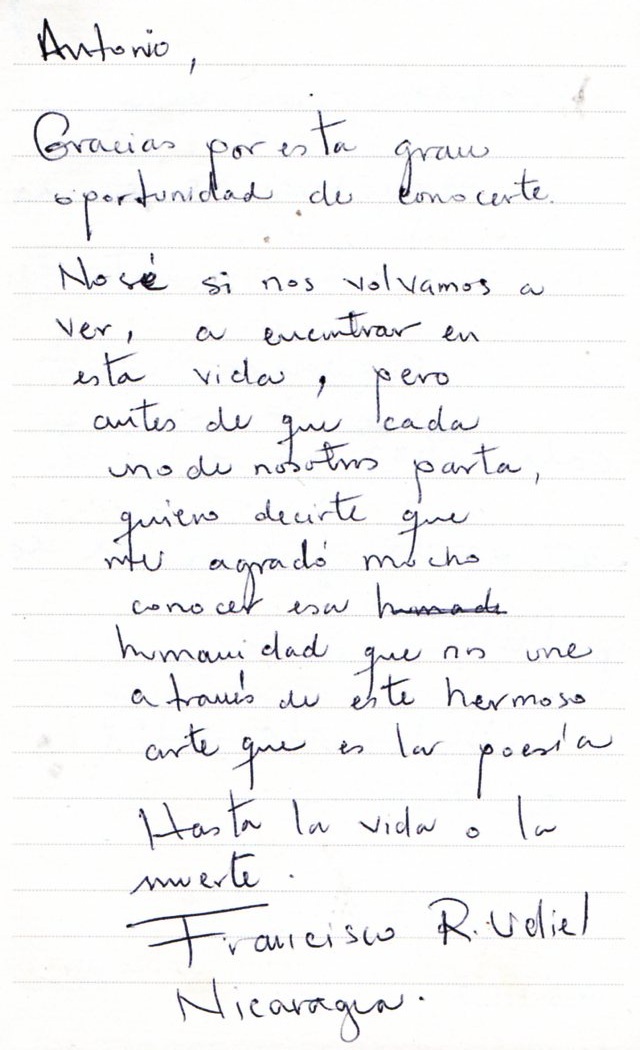 Antonio,
Gracias por esta gran
oportunidad de conocerte.
No sé si nos volvamos a
ver, a encontrar en
esta vida, pero
antes de que cada
uno de nosotros parta,
quiero decirte que
me agradó mucho
conocer esa humad
humanidad que nos une
a través de este hermoso
arte que es la poesía
Hasta la vida o la
muerte.
Francisco R. Udiel
Nicaragua.